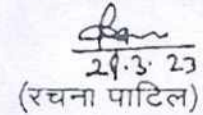 29.3.23
(रचना पाटिल)